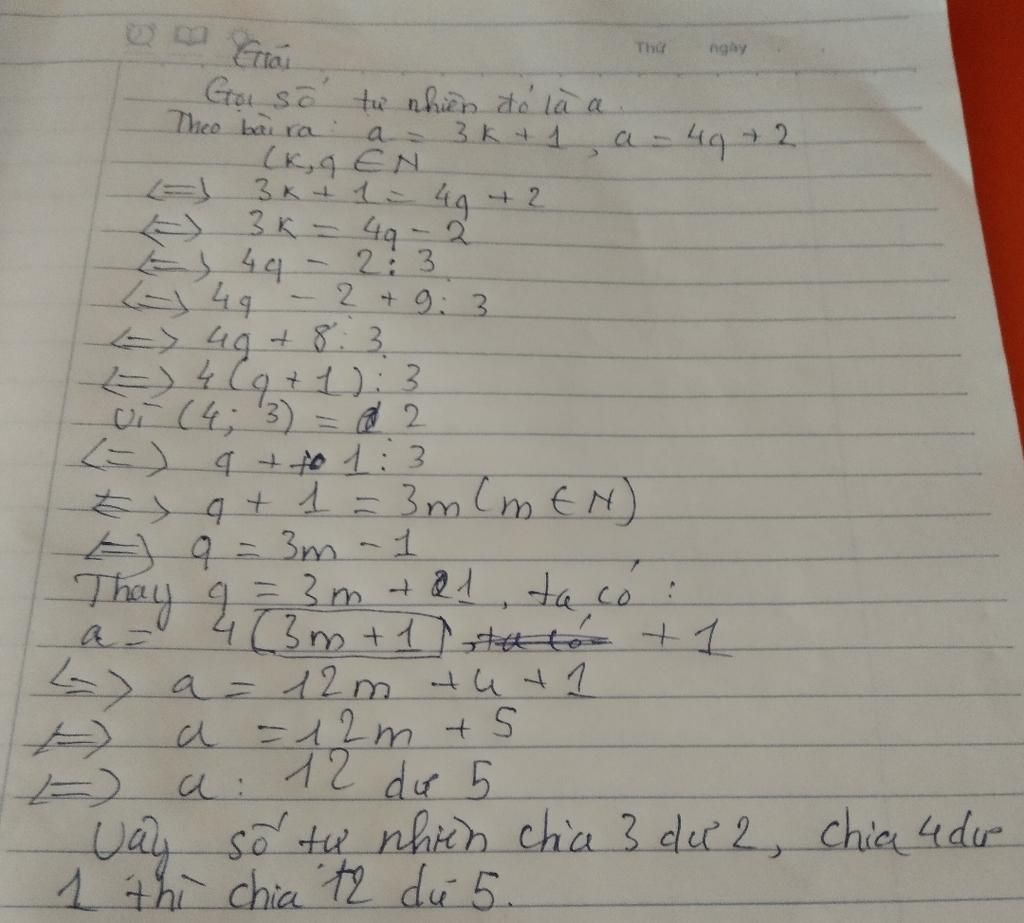 Thứ ngày
Giải
Gọi số tự nhiên đó là a.
Theo bài ra: a = 3k + 1, a = 4q + 2
(k, q ∈ N
<=> 3k + 1 = 4q + 2
<=> 3k = 4q - 2
<=> 4q - 2 : 3
<=> 4q - 2 + 9 : 3
<=> 4q + 8 : 3
<=> 4(q + 1) : 3
Vì (4; 3) = 2
<=> q + 1 : 3
<=> q + 1 = 3m (m ∈ N)
<=> q = 3m - 1
Thay q = 3m + 1, ta có :
a = 4(3m + 1) + 1
<=> a = 12m + 4 + 1
<=> a = 12m + 5
<=> a : 12 dư 5
Vậy số tự nhiên chia 3 dư 2, chia 4 dư
1 thì chia 12 dư 5.